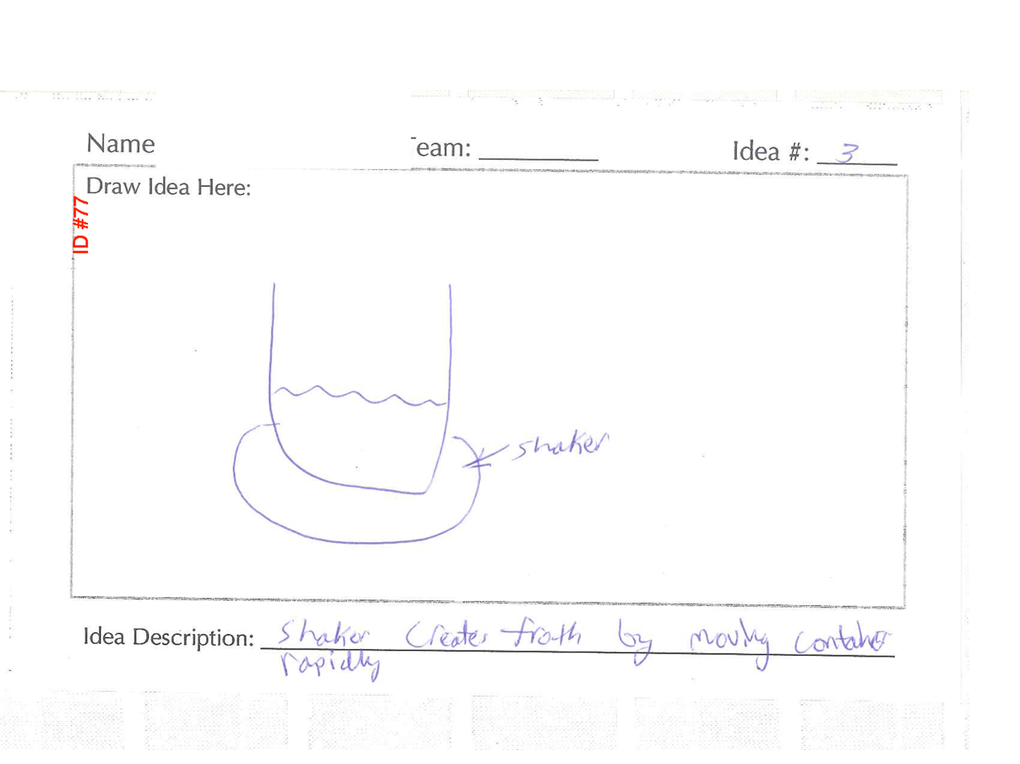 Name eam: Idea #: 3
Draw Idea Here:
ID #77
shaker
Idea Description: shaker creates froth by moving container
rapidly